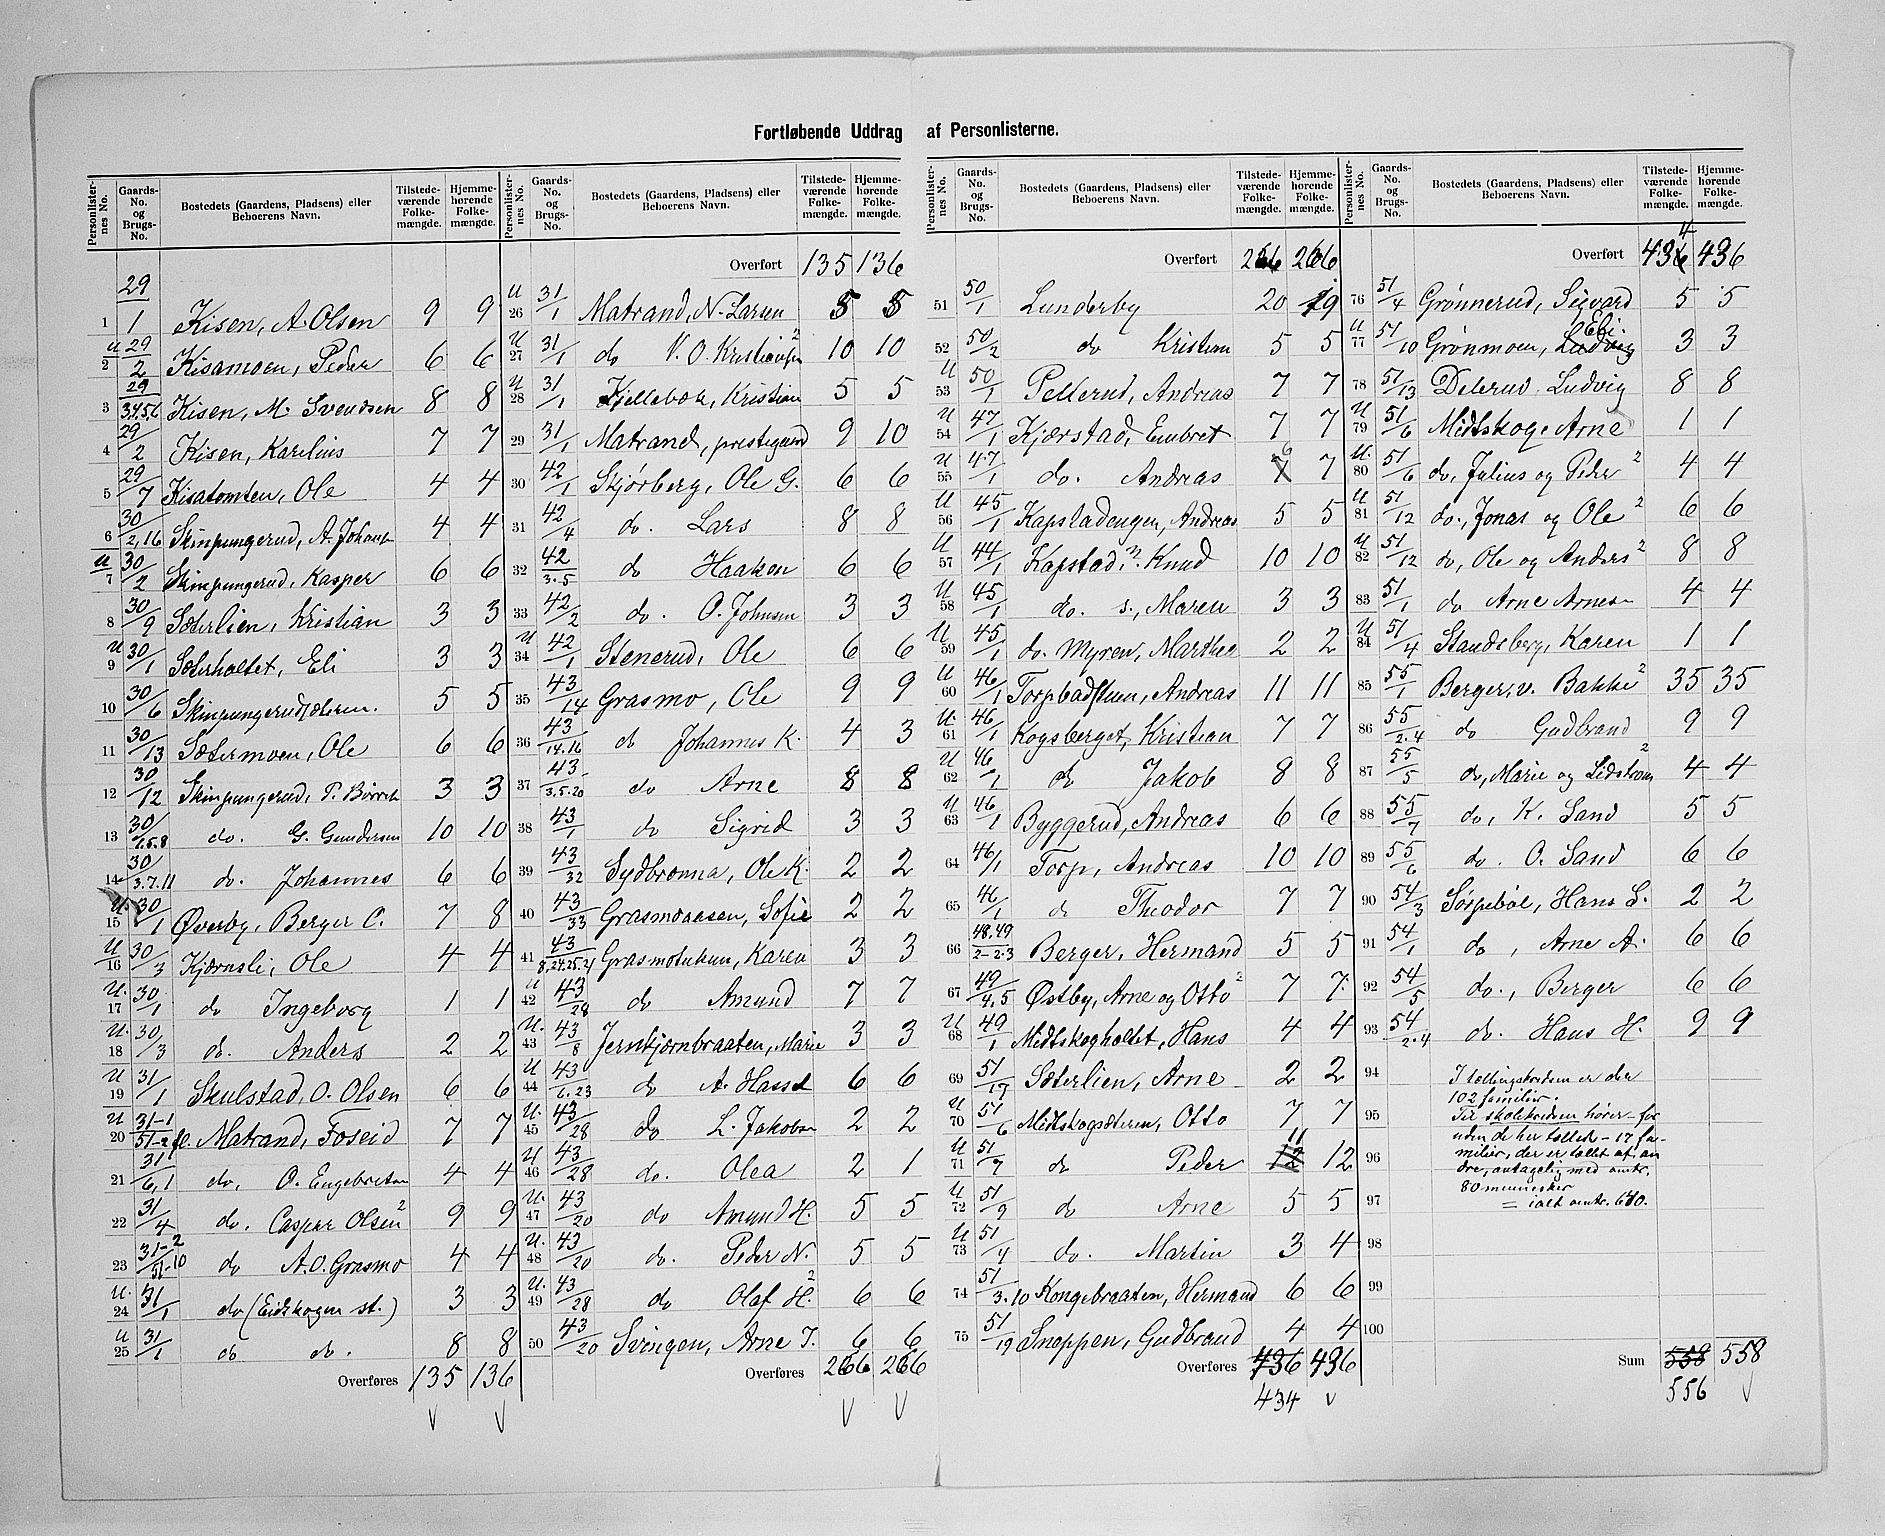 Fortløbende Uddrag af Personlisterne.
Personlisternes No. Gaards-No. og Brugs-No. Bostedets (Gaardens, Pladsens) eller Beboerens Navn. Tilstedeværende Folkemængde. Hjemmehørende Folkemængde.
1 29/1 Kisen, A. Olsen 9 9
U 2 29/2 Kisamoen, Peder 6 6
3 29/3.4.5.6 Kisen, M. Svendsen 8 8
4 29/2 Kisen, Karelius 7 7
5 29/7 Kisatomten, Ole 4 4
6 30/2,16 Skinpungerud, A. Johans 4 4
U 7 30/2 Skinpungerud, Kasper 6 6
8 30/9 Sæterlien, Kristian 3 3
U 9 30/1 Sæterholtet, Eli 3 3
10 30/6 Skinpungerudsæteren. 5 5
11 30/13 Sætermoen, Ole 6 6
12 30/12 Skinpungerud, P. 3 3
13 30/1.5.8 do. G. Gundersen 10 10
14 30/3.7.11 do. Johannes 6 6
U. 15 30/1 Øverby, Berger C. 7 8
U 16 30/3 Kjærnsli, Ole 4 4
U. 17 30/1 do Ingeborg 1 1
U. 18 30/3 do. Anders 2 2
U 19 31/1 Skulstad, O. Olsen 6 6
U 20 31-1/51-2 fl. Matrand, Foseid 7 7
21 31/6,1 do, O. Engebretsen 4 4
22 31/4 do. Casper Olsen 2 9 9
23 31-2/51-10 do A. O. Grasmo 4 4
U. 24 31/1 do (Eidskogen st.) 3 3
U 25 31/1 do do. 8 8
Overføres 135 136
Personlisternes No. Gaards-No. og Brugs-No. Bostedets (Gaardens, Pladsens) eller Beboerens Navn. Tilstedeværende Folkemængde. Hjemmehørende Folkemængde.
Overført 135 136
U 26 31/1 Matrand, N. Larsen 5 5
U 27 31/1 do V. O. Kristiansen 2 10 10
U 28 31/1 Kjellebæk, Kristian 5 5
29 31/1 Matrand, prestegaard 9 10
30 42/1 Skjørberg, Ole G. 6 6
31 42/4 do. Lars 8 8
32 42/3.5 do Haaken 6 6
33 42/2 do. O. Johnsen 3 3
U 34 42/1 Stenerud, Ole 6 6
35 43/14 Grasmo, Ole 9 9
36 43/14.16 do Johannes K. 4 3
37 43/3.5.20 do Arne 8 8
38 43/1 do Sigrid 3 3
39 43/32 Sydbrønna, Ole K. 2 2
40 43/33 Grasmoaasen, Sofie 2 2
41 43/8,24.25.21 Grasmotukun, Karen 3 3
U 42 43/28 do Amund 7 7
U. 43 43/8 Jernkjørnbraaten, Marie 3 3
U 44 43/6.23 do A. Hassel 6 6
U. 45 43/28 do L. Jakobsen 2 2
U 46 43/28 do. Olea 2 1
U. 47 43/20 do Amund H. 5 5
U. 48 43/20 do. Peder N. 5 5
U. 49 43/28 do Olaf H. 2 6 6
50 43/20 Svingen, Arne T. 6 6
Overføres 266 266
Personlisternes No. Gaards-No. og Brugs-No. Bostedets (Gaardens, Pladsens) eller Beboerens Navn. Tilstedeværende Folkemængde. Hjemmehørende Folkemængde.
Overført 266 266
51 50/1 Lunderby 20 19
52 50/2 do Kristian 5 5
U 53 50/1 Pellerud, Andreas 7 7
U 54 47/1 Kjærstad, Embret 7 7
U 55 47/1 do. Andreas 7 6 7
U 56 45/1 Kapstadengen, Andreas 5 5
U 57 44/1 Kapstad, n. Knud 10 10
U 58 45/1 do. s., Maren 3 3
U 59 45/1 do. Myren, Marthea 2 2
U 60 46/1 Torpbadstuen, Andreas 11 11
U. 61 46/1 Kogsberget, Kristian 7 7
U 62 46/1 do Jakob 8 8
U 63 46/1 Byggerud, Andreas 6 6
64 46/1 Torp, Andreas 10 10
65 46/1 do Theodor 7 7
66 48.49/2-2.3 Berger, Hermand 5 5
67 49/4.5 Østby, Arne og Otto 2 7 7
U 68 49/1 Midtskogholtet, Hans 4 4
69 51/17 Sæterlien, Arne 2 2
U 70 51/6 Midtskogsæteren, Otto 7 7
U 71 51/7 do Peder 12 11 12
U 72 51/9 do Arne 5 5
U 73 51/4 do. Martin 3 4
74 51/3.10 Kongebraaten, Hermand 6 6
75 51/19 Snoppen, Gudbrand 4 4
Overføres 436 436
434
Personlisternes No. Gaards-No. og Brugs-No. Bostedets (Gaardens, Pladsens) eller Beboerens Navn. Tilstedeværende Folkemængde. Hjemmehørende Folkemængde.
Overført 436 4 436
76 51/4 Grønnerud, Sigvard 5 5
U 77 51/10 Grønmoen, Ludvig Eli. 3 3
78 51/13 Delerud. Ludvig 8 8
U 79 51/6 Midtskog. Arne 1 1
U. 80 51/6 do, Julius og Peder 2 4 4
U 81 51/12 do., Jonas og Ole 2 6 6
U 82 51/12 do, Ole og Anders 2 8 8
83 51/1 do Arne Arnesen 4 4
U 84 51/4 Standsberg, Karen 1 1
85 55/1 Berger, v. Bakke 2 35 35
86 55/2.4 do Gudbrand 9 9
87 55/5 do, Marie og Lidstrøm 2 4 4
88 55/7 do, K. Sand 5 5
89 55/6 do. O. Sand 6 6
90 54/3 Sørpebøl, Hans L. 2 2
91 54/1 do, Arne A. 6 6
92 54/5 do., Berger 6 6
93 54/2.4 do. Hans H. 9 9
94 I tællingskredsen er der
102 familier.
95 Til skolekredsen hører for
uden de her tællede - 17 fa-
96 milier, der er tællet af an
dre, antagelig med omtr.
80 mennesker
97 = ialt omtr. 640.
98
99
100
Sum 558 558
556